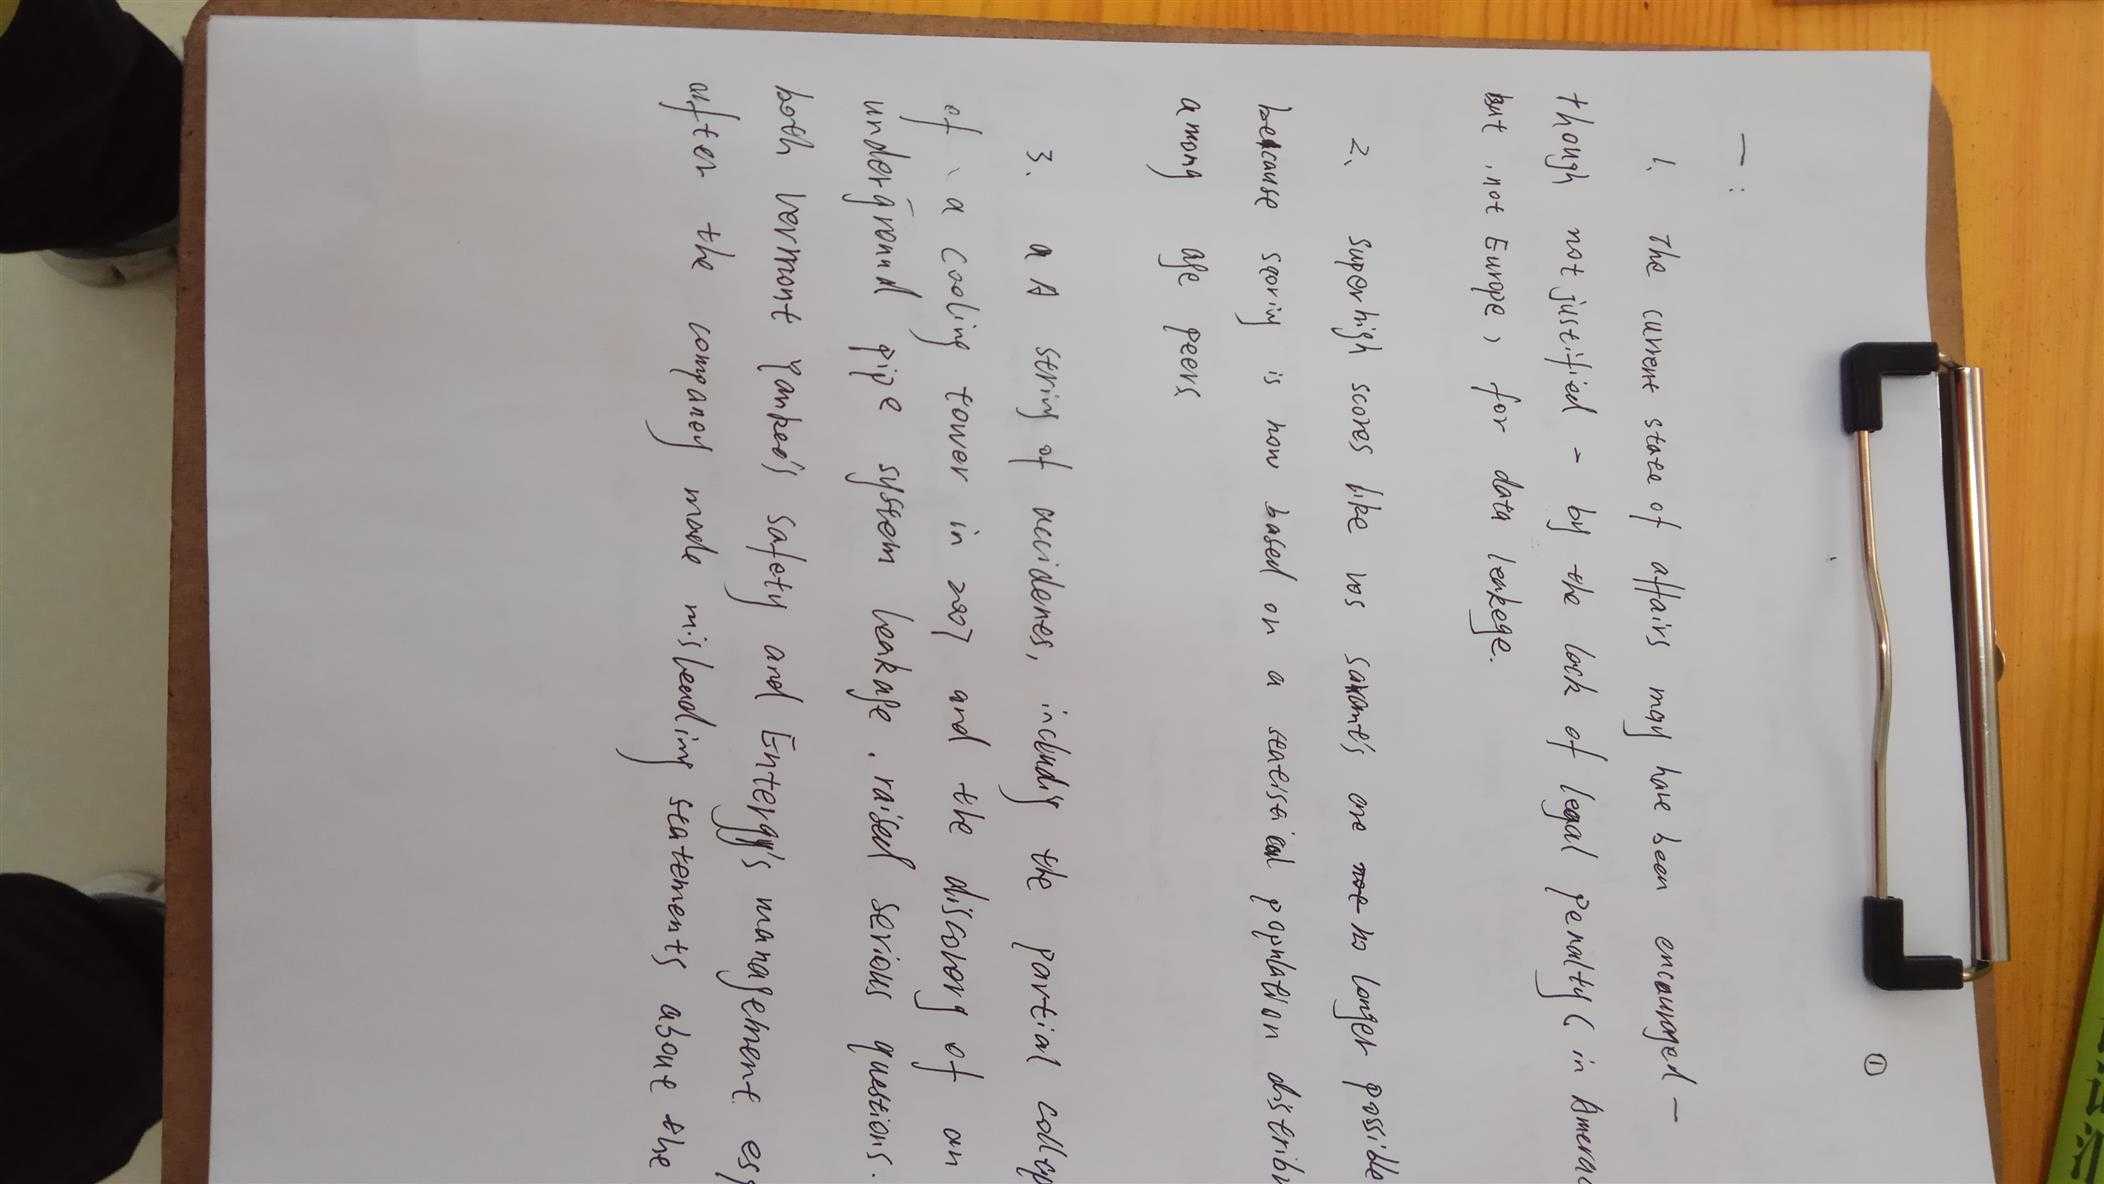 ①
一:
1. The current state of affairs may have been encouraged —
though not justified - by the lack of legal penalty ( in Amerac
but , not Europe ) for data leakege.
2. superhigh scores like vos savant's are no longer possible
because scoring is now based on a statistical population distribu
among age peers
3. a A string of accidents, includig the partial collap
of a cooling tower in 2007 and the discovory of an
underground pipe system leakage , raised serious questions.
both vermont Yankee's safety and Entergy's management esp
after the company made misleading statements about the